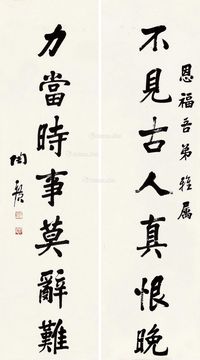 恩福吾弟雅属
不見古人真恨晚
力當時事莫辭難
陶